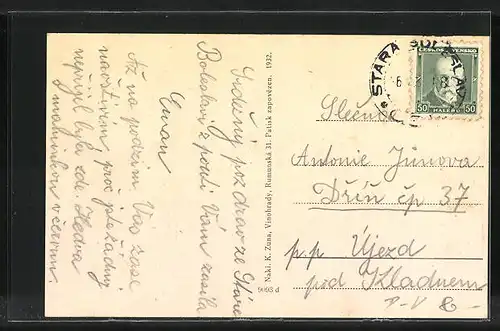 Srdečný pozdrav ze Staré
Boleslavi z pouti Vám zasílá
Eman
Až na podzim Vás zase
navštívím, proč též žádný
nepřijel byla zde Hedva
s maminkou v červnu
Nákl. K. Zuna, Vinohrady, Rumunská 31. Patisk zapovězen. 1932.
9093 d
STARÁ BOLESLAV
6
ČESKOSLOVENSKO
50 50
Slečna
Antonie Jůnova
Dříň čp 37
p.p. Újezd
pod Kladnem
D-V 8-